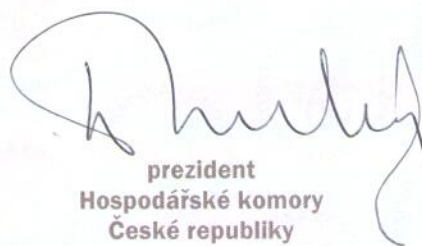 prezident
Hospodářské komory
České republiky